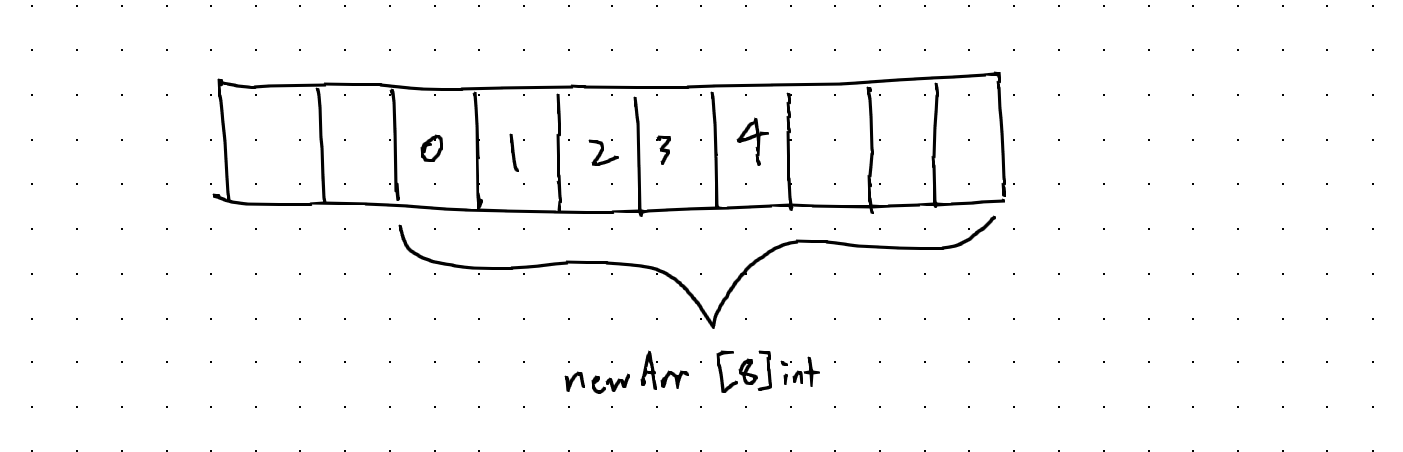 0 1 2 3 4
newArr [8]int